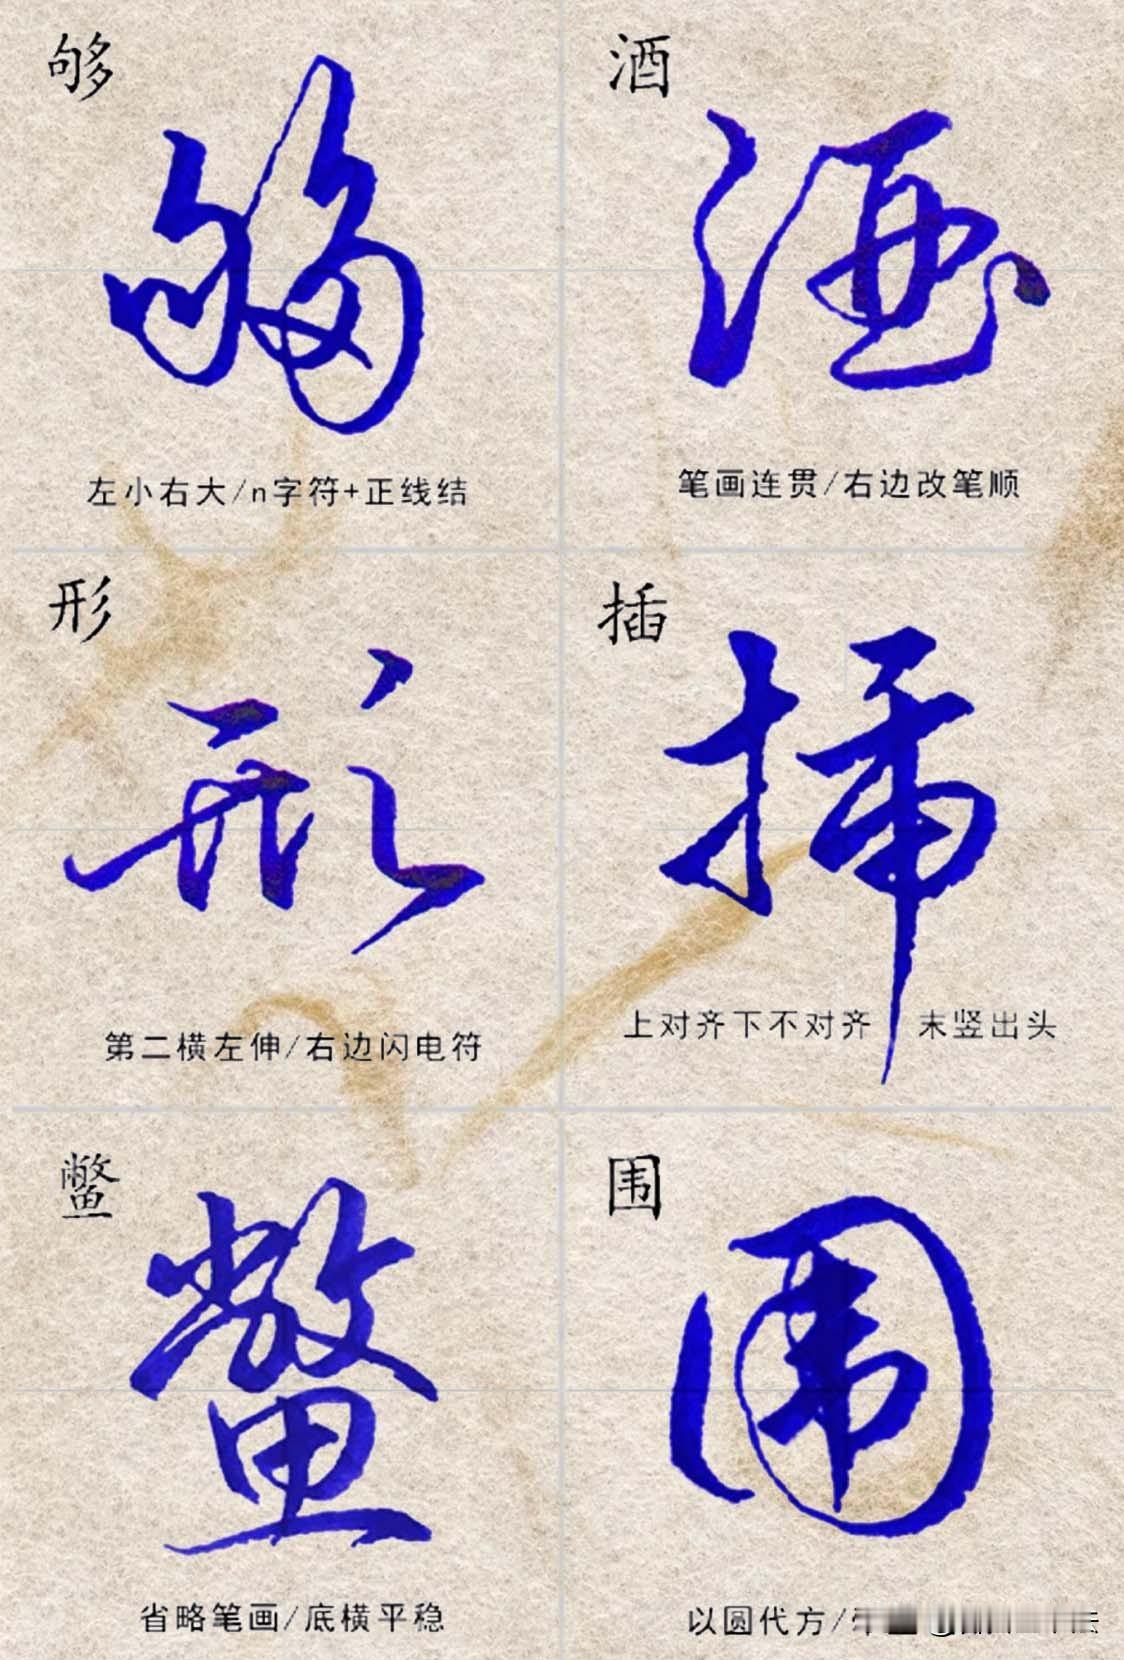 够
够
左小右大/n字符+正线结
酒
酒
笔画连贯/右边改笔顺
形
形
第二横左伸/右边闪电符
插
插
上对齐下不对齐 末竖出头
鳖
鳖
省略笔画/底横平稳
围
围
以圆代方/